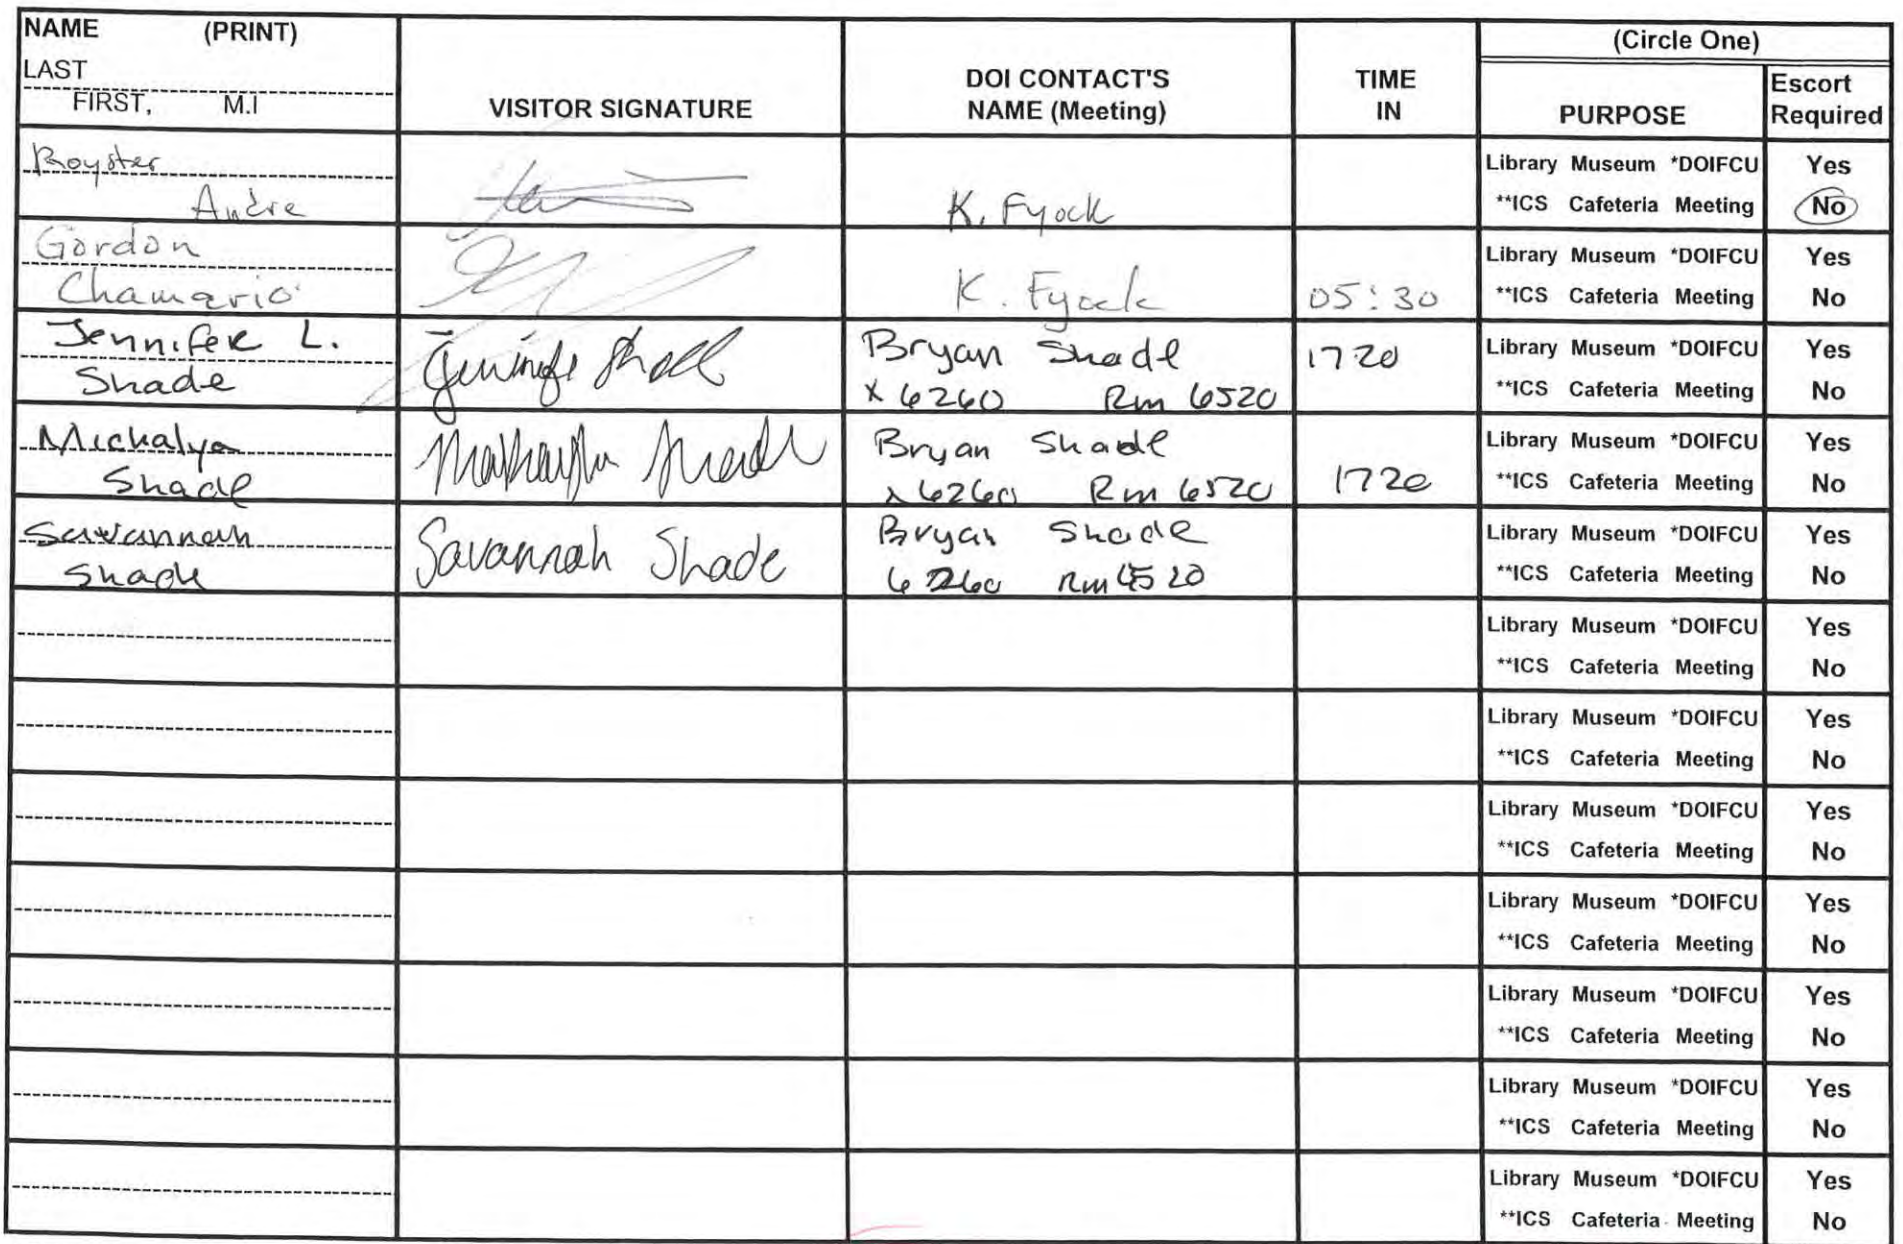 NAME (PRINT)
LAST
FIRST, M.I
VISITOR SIGNATURE
DOI CONTACT'S
NAME (Meeting)
TIME
IN
(Circle One)
PURPOSE
Escort
Required
Royster
Andre
K. Fyock
Library Museum *DOIFCU Yes
**ICS Cafeteria Meeting No
Gordon
Chamario
K. Fyock
05:30
Library Museum *DOIFCU Yes
**ICS Cafeteria Meeting No
Jennifer L.
Shade
Bryan Shade
x6260 Rm 6520
1720
Library Museum *DOIFCU Yes
**ICS Cafeteria Meeting No
Michalya
Shade
Bryan Shade
x6260 Rm 6520
1720
Library Museum *DOIFCU Yes
**ICS Cafeteria Meeting No
Savannah
Shade
Savannah Shade
Bryan Shade
6260 Rm 6520
Library Museum *DOIFCU Yes
**ICS Cafeteria Meeting No
Library Museum *DOIFCU Yes
**ICS Cafeteria Meeting No
Library Museum *DOIFCU Yes
**ICS Cafeteria Meeting No
Library Museum *DOIFCU Yes
**ICS Cafeteria Meeting No
Library Museum *DOIFCU Yes
**ICS Cafeteria Meeting No
Library Museum *DOIFCU Yes
**ICS Cafeteria Meeting No
Library Museum *DOIFCU Yes
**ICS Cafeteria Meeting No
Library Museum *DOIFCU Yes
**ICS Cafeteria Meeting No